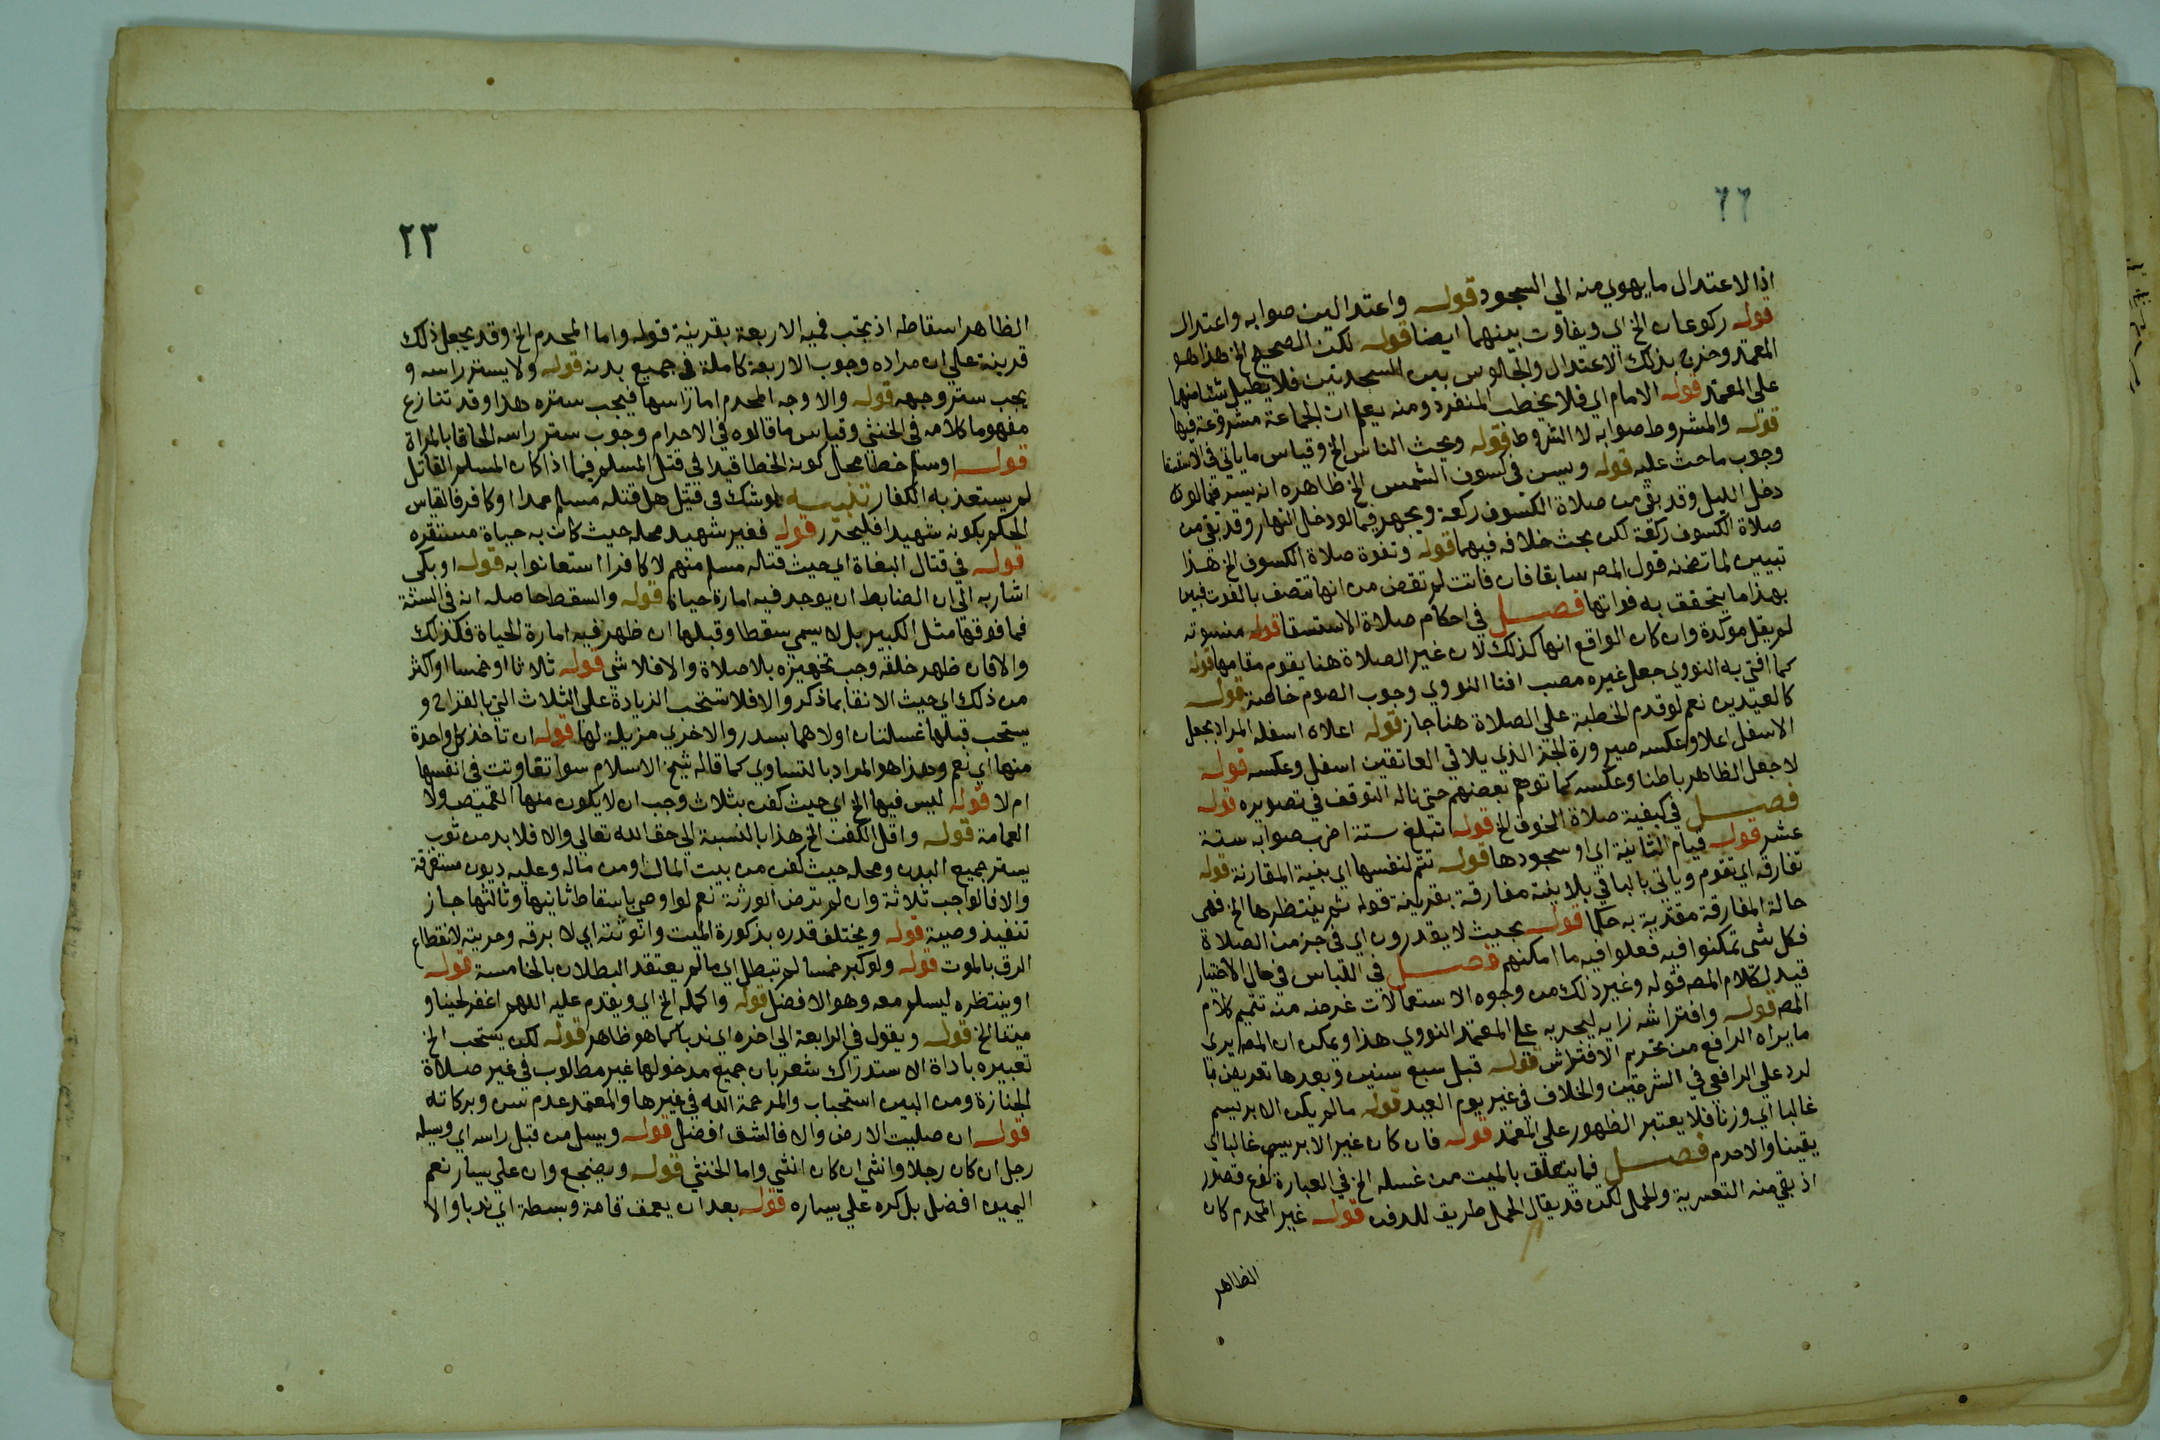 ٢٢
اذا الاعتدال ما يهوي منه الي السجود قوله واعتدالين صوابه واعتدال
قوله ركوعان الخ اي ويفاوت بينهما ايضا قوله لكن الصحيح الخ هذا هو
المعتمد وخرج بذلك الاعتدال والجالوس بين السجدتين فلا يطيل شئا منها
علي المعتمد قوله الامام اي فلا يخطب المنفرد ومنه يعلم ان الجماعة مشروعة فيها
قوله والمشروط صوابه لا الشروط قوله ويحث الناس الخ وقياس ما ياتي في الاستسقا
وجوب ما حث عليه قوله ويسن في كسوف الشمس الخ ظاهره انه يسر فيما لو
دخل الليل وقد بقي من صلاة الكسوف ركعة ويجهر فيما لو دخل النهار وقد بقي من
صلاة الكسوف ركعة لكن بحث خلافه فيهما قوله وتفوة صلاة الكسوف الخ هذا
تبيين لما تضمنه قول المص سابقا فان فاتت لم تقض من انها تتصف بالفوت فبين
بهذا ما يتحقق به فواتها فصل في احكام صلاة الاستسقا قوله مسنونه
لم يقل موكدة وان كان الواقع انها كذلك لان غير الصلاة هنا يقوم مقامها قوله
كما افتي به النووي جعل غيره مصب افتا النووي وجوب الصوم خاصة قوله
كالعيدين نعم لو قدم الخطبة علي الصلاة هنا جاز قوله اعلاه اسفله المراد بجعل
الاسفل اعلا وعكسه صيرورة الجز الذي يلاقي العاتقين اسفل وعكسه قوله
لا جعل الظاهر باطنا وعكسه كما توهم بعضهم حتي ناله التوقف في تصويره قوله
فصل في كيفية صلاة الخوف الخ قوله تبلغ ستة اضرب صوابه ستة
عشر قوله قيام الثانية اي او سجودها قوله تتم لنفسها اي بنية المقارنة قوله
تفارقه اي تقوم وياتي بالباقي بلا نية مفارقة بقرينة قوله ثم ينتظرها الخ فهي
حالة المفارقة مقتدية به حكما قوله بحيث لا يقدرون اي في جز من الصلاة
فكل شي تمكنوا فيه فعلوا فيه ما امكنهم فصل في اللباس في حال الاختيار
قيد لكلام المص قوله وغير ذلك من وجوه الاستعمالات غرضه منه تتميم كلام
المص قوله وافتراشه زايه ليجريه علي المعتمد النووي هذا ويمكن ان المص يري
ما يراه الرافع من تحريم الافتراش قوله قبل سبع سنين وبعدها تعريض بالـ
لرد علي الرافعي في الشرحين والخلاف في غير يوم العيد قوله ما لم يكن الابريسم
غالبا اي وزنا فلا يعتبر الظهور علي المعتمد قوله فان كان غير الابريسم غالبا اي
يقينا والاحرم فصل فيما يتعلق بالميت من غسله الخ في العبارة نوع قصور
اذ بقي منه التعزية والحمل لكن قد يقال الحمل طريق للدفن قوله غير المحرم كان
الظاهر
٢٣
الظاهر اسقاطه اذ يجب فيه الاربعة بقرينة قوله واما المحرم الخ وقد يجعل ذلك
قرينة علي ان مراده وجوب الاربعة كاملة في جميع بدنه قوله ولا يستر راسه و
يجب ستر وجهه قوله والا وجه المحرم اما راسها فيجب ستره هذا وقد تنازع
مفهوما كلامه في الخنثي وقياس ما قالوه في الاحرام وجوب ستر راسه الحاقا بالمراة
قوله او سلم خطا محل كونه الخطا قيدا في قتل المسلم فيما اذا كان المسلم القاتل
لم يستعن به الكفار تنبيه لو شك في قتيل هل قتله مسلم عمدا او كافر فالقياس
الحكم بكونه شهيدا فليحرر قوله فغير شهيد محله حيث كان به حياة مستقره
قوله في قتال البغاة اي حيث قتاله مسلم منهم لا كافرا استعانوا به قوله او بكي
اشار به الي ان الضابط ان يوجد فيه امارة حياة قوله والسقط حاصله انه في الستة
فما فوقها مثل الكبير بل لا يسمي سقطا وقبلها ان ظهر فيه امارة الحياة فكذلك
والافان ظهر خلقه وجب تجهيزه بلا صلاة والا فلا شي قوله ثلاثا او خمسا او اكثر
من ذلك اي حيث الانقا بما ذكر والا فلا تستحب الزيادة علي الثلاث التي بالقراح و
يستحب قبلها غسلتان اولاهما بسدر والاخري مزيلة لها قوله ان تاخذ كل واحدة
منها اي نعم وهذا هو المراد بالتساوي كما قاله شيخ الاسلام سوا تفاوتت في انفسها
ام لا قوله ليس فيها الخ اي حيث كفن بثلاث وجب ان لا يكون منها القميص ولا
العمامة قوله واقل الكفن الخ هذا بالنسبة الي حق الله تعالي والا فلا بد من ثوب
يستر جميع البدن ومحله حيث كفن من بيت المال او من ماله وعليه ديون مستغرقة
والا فالواجب ثلاثة وان لم ترض الورثة نعم لو اوصي باسقاط ثانيها وثالثها جاز
تنفيذ وصية قوله ويختلف قدره بذكورة الميت وانوثته اي لا برقه وحريته لانقطاع
الرق بالموت قوله ولو كبر خمسا لم تبطل اي ما لم يعتقد البطلان بالخامسة قوله
او ينتظره ليسلم معه وهو الافضل قوله واكمله الخ اي ويقدم عليه اللهم اغفر لحينا و
ميتنا الخ قوله ويقول في الرابعة الي اخره اي ندبا كما هو ظاهر قوله لكن يستحب الخ
تعبيره باداة الاستدراك شعر بان جميع مدخولها غير مطلوب في غير صلاة
الجنازة ومن البين استحباب والمرحمة الله في غيرها والمعتمد عدم سن وبركاته
قوله ان صلبت الارض والا فالشق افضل قوله ويسل من قبل راسه اي وسيله
رجل ان كان رجلا وانثي ان كان انثي واما الخنثي قوله ويضجع وان علي يسار نعم
اليمين افضل بل كره علي يساره قوله بعد ان يعمق قامة وبسطة اي ندبا والا